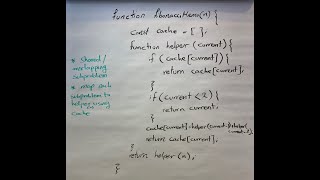 function fibonacciMemo(n) {
const cache = [ ];
function helper (current) {
if (cache[current]) {
return cache[current];
}
if (current < 2) {
return current;
}
cache[current] = helper(current-1)+helper(current-2);
return cache[current];
}
return helper(n);
}
* Shared/
overlapping
subproblem
* map each
subproblem to
helper using
cache